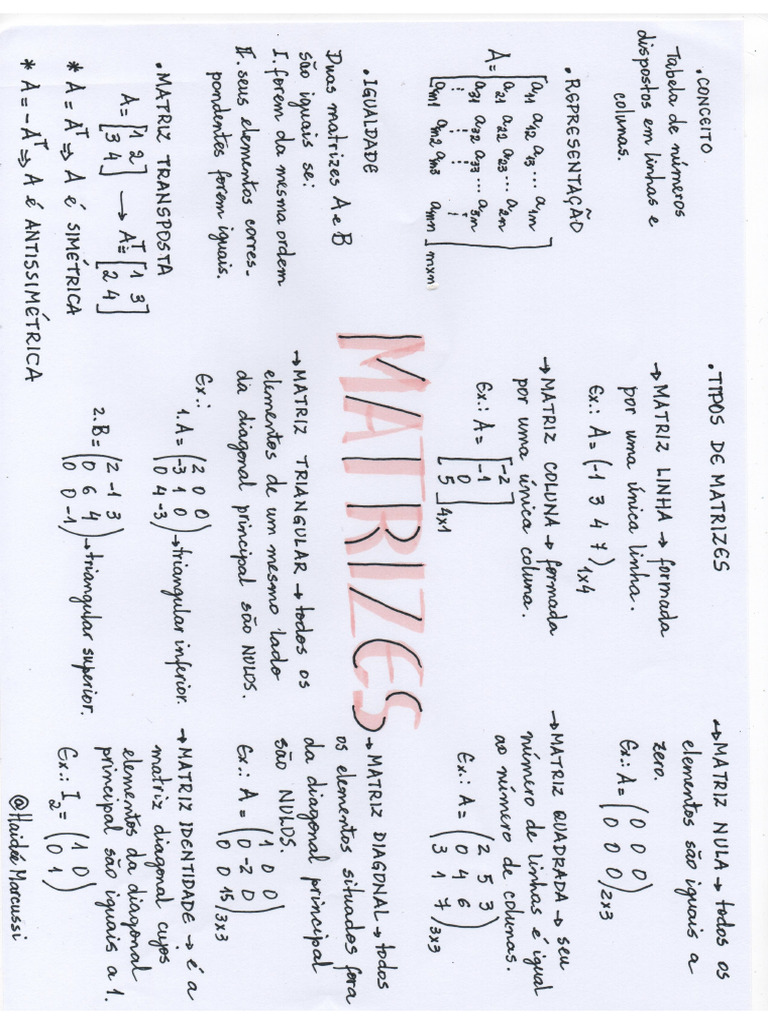 MATRIZES
. CONCEITO
Tabela de números
dispostos em linhas e
colunas.
. REPRESENTAÇÃO
A = [a11 a12 a13 ... a1n
a21 a22 a23 ... a2n
a31 a32 a33 ... a3n
⋮ ⋮ ⋮ ⋮
am1 am2 am3 amn] mxn
. IGUALDADE
Duas matrizes A e B
são iguais se:
I. forem da mesma ordem
II. seus elementos corres-
pondentes forem iguais.
. MATRIZ TRANSPOSTA
A = [1 2 → Aᵀ = [1 3
3 4] 2 4]
* A = Aᵀ ⇒ A é SIMÉTRICA
* A = -Aᵀ ⇒ A é ANTISSIMÉTRICA
. TIPOS DE MATRIZES
→ MATRIZ LINHA → formada
por uma única linha.
Ex.: A = (-1 3 4 7) 1x4
→ MATRIZ COLUNA → formada
por uma única coluna.
Ex.: A = [-2
-1
0
5] 4x1
→ MATRIZ TRIANGULAR → todos os
elementos de um mesmo lado
da diagonal principal são NULOS.
Ex.:
1. A = (2 0 0
-3 1 0
0 4 -3) → triangular inferior.
2. B = (2 -1 3
0 6 4
0 0 -1) → triangular superior.
→ MATRIZ NULA → todos os
elementos são iguais a
zero.
Ex.: A = (0 0 0
0 0 0) 2x3
→ MATRIZ QUADRADA → seu
número de linhas é igual
ao número de colunas.
Ex.: A = (2 5 3
0 4 6
3 1 7) 3x3
→ MATRIZ DIAGONAL → todos
os elementos situados fora
da diagonal principal
são NULOS.
Ex.: A = (1 0 0
0 -2 0
0 0 15) 3x3
→ MATRIZ IDENTIDADE → é a
matriz diagonal cujos
elementos da diagonal
principal são iguais a 1.
Ex.: I2 = (1 0
0 1)
@Haidée Marcussi